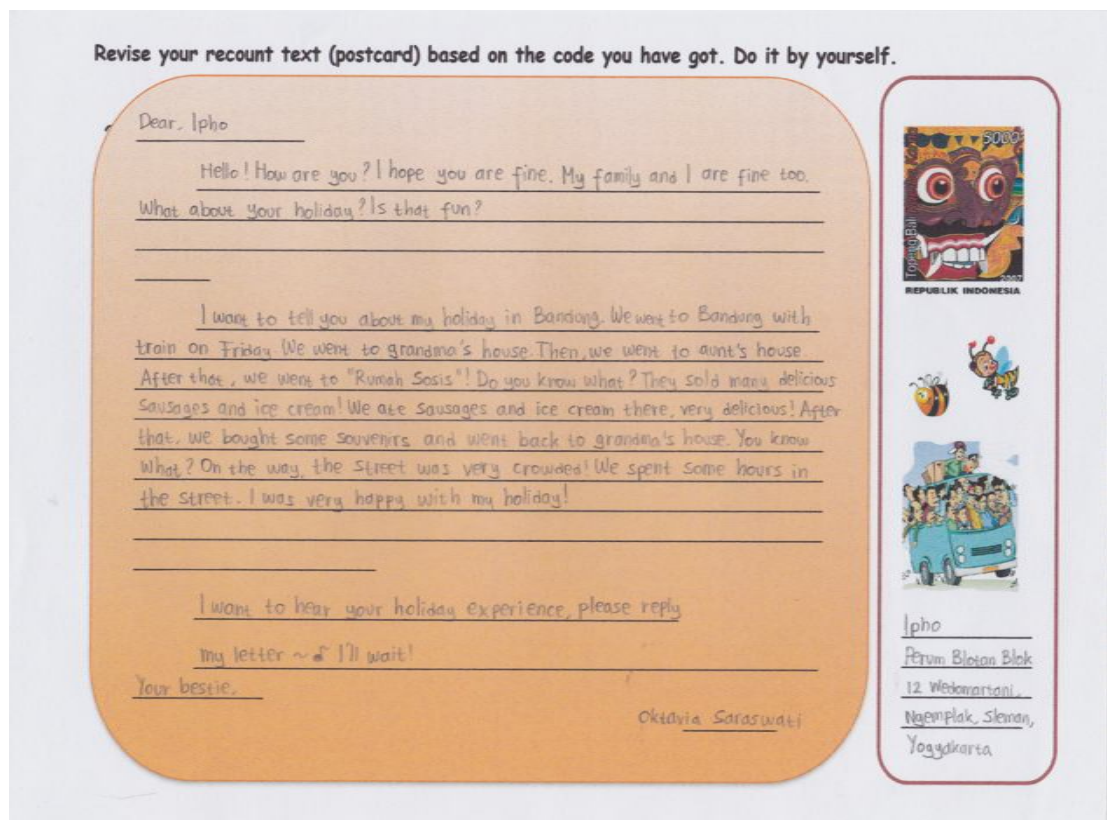 Revise your recount text (postcard) based on the code you have got. Do it by yourself.
Dear, Ipho
Hello! How are you? I hope you are fine. My family and I are fine too.
What about your holiday? Is that fun?
I want to tell you about my holiday in Bandung. We went to Bandung with
train on Friday. We went to grandma's house. Then, we went to aunt's house.
After that, we went to "Rumah Sosis"! Do you know what? They sold many delicious
sausages and ice cream! We ate sausages and ice cream there, very delicious! After
that, we bought some souvenirs and went back to grandma's house. You know
what? On the way, the street was very crowded! We spent some hours in
the street. I was very happy with my holiday!
I want to hear your holiday experience, please reply
my letter ~♪ I'll wait!
Your bestie,
Oktavia Saraswati
5000
Topeng Bali
2007
REPUBLIK INDONESIA
Ipho
Perum Blotan Blok
12 Wedomartani,
Ngemplak, Sleman,
Yogyakarta